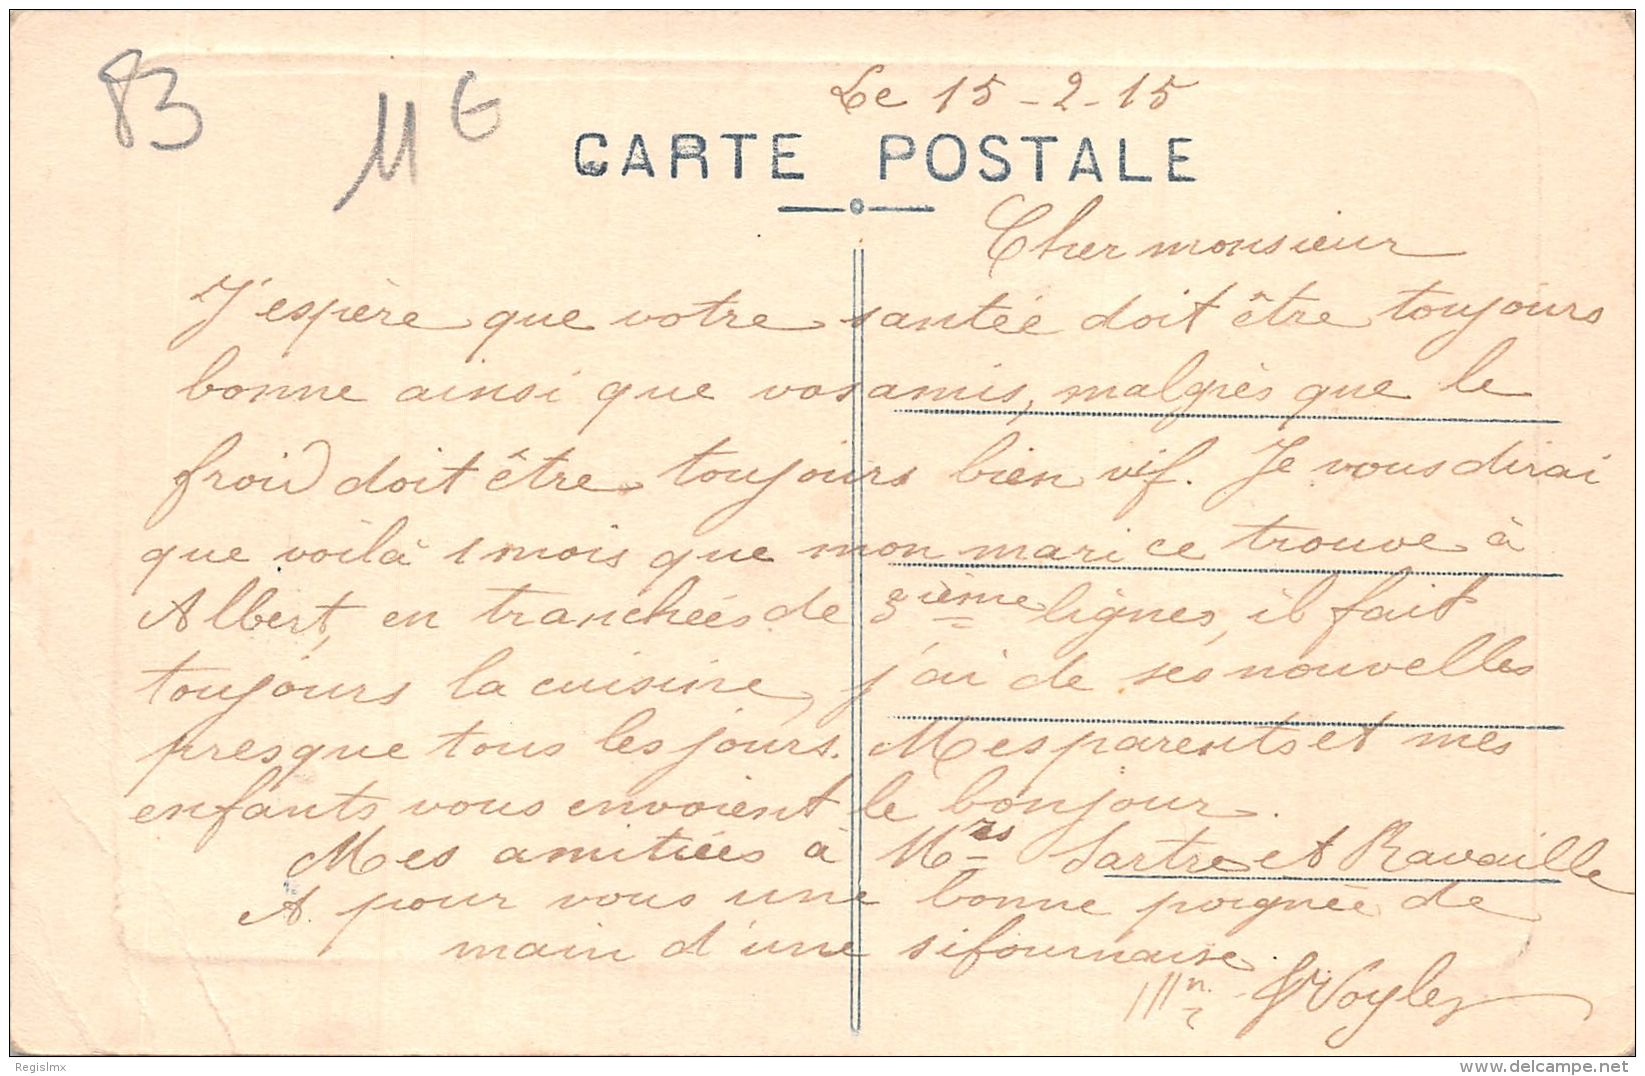 83
11 €
Le 15-2-15
CARTE POSTALE
Cher monsieur
J'espère que votre santée doit être toujours
bonne ainsi que vos amis, malgrès que le
froid doit être toujours bien vif. Je vous dirai
que voilà 1 mois que mon mari ce trouve à
Albert, en tranchées de 3ième lignes, il fait
toujours la cuisine, j'ai de ses nouvelles
presque tous les jours. Mes parents et mes
enfants vous envoient le bonjour.
Mes amitiées à Mrs Sartre et Ravaille
A pour vous une bonne poignée de
main d'une sifournaise.
Regislmx
www.delcampe.net